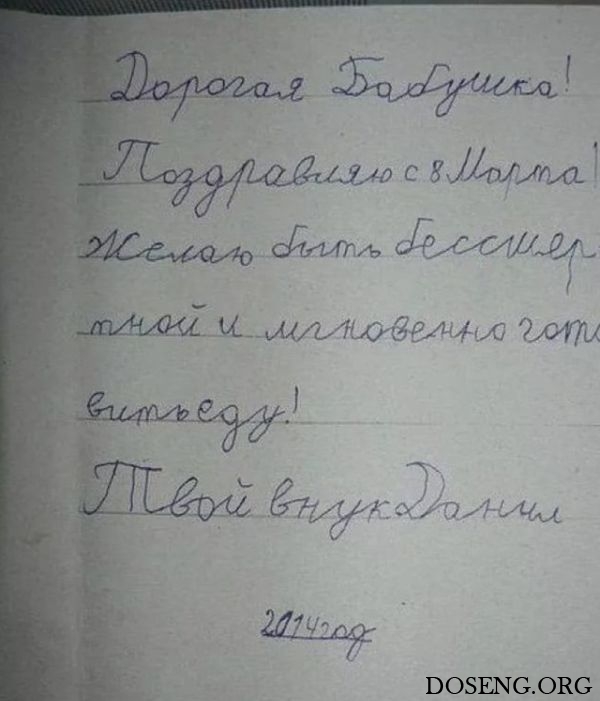 Дорогая Бабушка!
Поздравляю с 8 Марта!
Желаю быть бессмер
тной и мгновенно гото
вить еду!
Твой внук Данил
2014 год
DOSENG.ORG